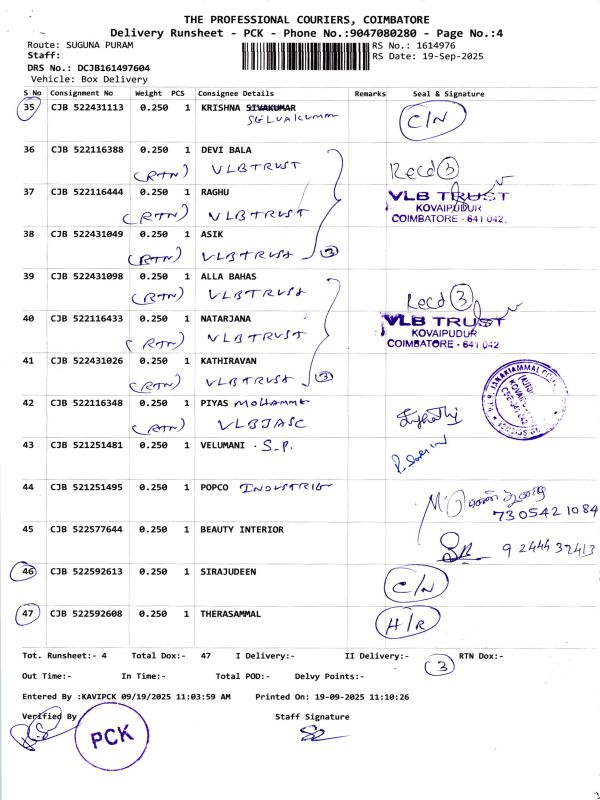 THE PROFESSIONAL COURIERS, COIMBATORE
Delivery Runsheet - PCK - Phone No.:9047080280 - Page No.:4
Route: SUGUNA PURAM RS No.: 1614976
Staff: RS Date: 19-Sep-2025
DRS No.: DCJB161497604
Vehicle: Box Delivery
S No Consignment No Weight PCS Consignee Details Remarks Seal & Signature
35 CJB 522431113 0.250 1 KRISHNA SIVAKUMAR
SELVAKUMAR C/N
36 CJB 522116388 0.250 1 DEVI BALA
(RTN) VLBTRUST Recd 3
37 CJB 522116444 0.250 1 RAGHU VLB TRUST
(RTN) VLBTRUST KOVAIPUDUR
COIMBATORE - 641 042.
38 CJB 522431049 0.250 1 ASIK
(RTN) VLBTRUST 3
39 CJB 522431098 0.250 1 ALLA BAHAS
(RTN) VLBTRUST Recd 3
40 CJB 522116433 0.250 1 NATARJANA VLB TRUST
(RTN) VLBTRUST KOVAIPUDUR
COIMBATORE - 641 042
41 CJB 522431026 0.250 1 KATHIRAVAN
(RTN) VLBTRUST 3
42 CJB 522116348 0.250 1 PIYAS MOHAMME
(RTN) VLBJASC
43 CJB 521251481 0.250 1 VELUMANI . S.P.
44 CJB 521251495 0.250 1 POPCO INDUSTRIES
7305421084
45 CJB 522577644 0.250 1 BEAUTY INTERIOR
9244432413
46 CJB 522592613 0.250 1 SIRAJUDEEN C/N
47 CJB 522592608 0.250 1 THERASAMMAL H/R
Tot. Runsheet:- 4 Total Dox:- 47 I Delivery:- II Delivery:- RTN Dox:-
3
Out Time:- In Time:- Total POD:- Delvy Points:-
Entered By :KAVIPCK 09/19/2025 11:03:59 AM Printed On: 19-09-2025 11:10:26
Verified By Staff Signature
PCK